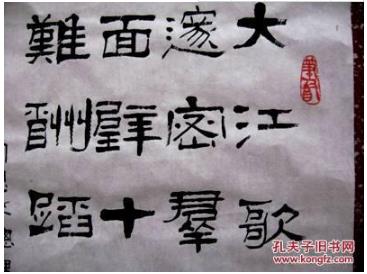 大江歌
邃密羣
面壁十
難酬蹈
孔夫子旧书网
www.kongfz.com